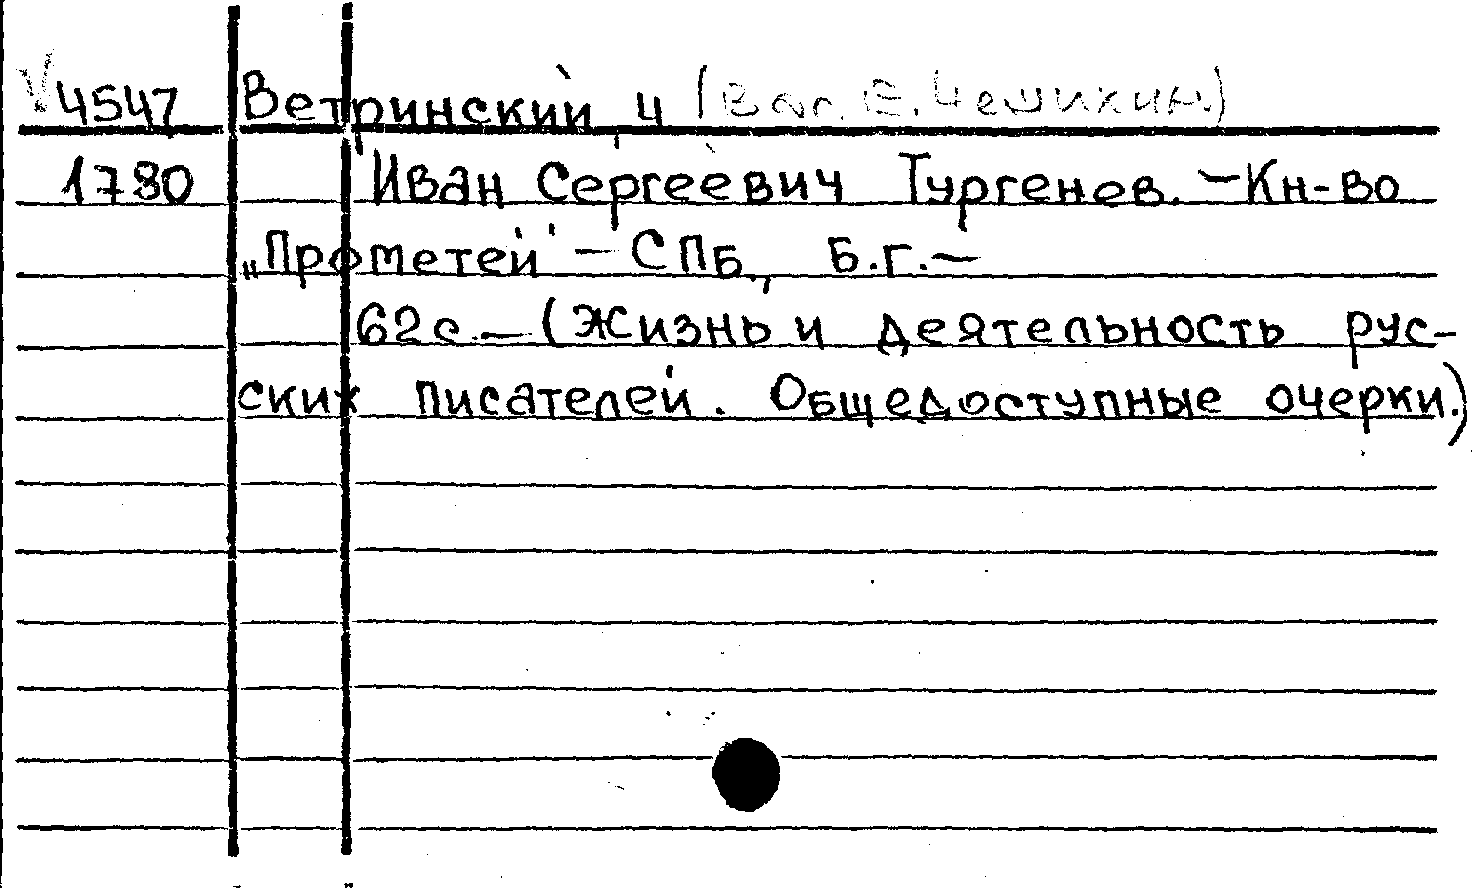 V4547 Ветринский Ч (Вас. Е. Чешихин.)
1780 Иван Сергеевич Тургенев. – Кн-во
„Прометей" – СПБ., Б.г. –
62с. – (Жизнь и деятельность рус-
ских писателей. Общедоступные очерки.)